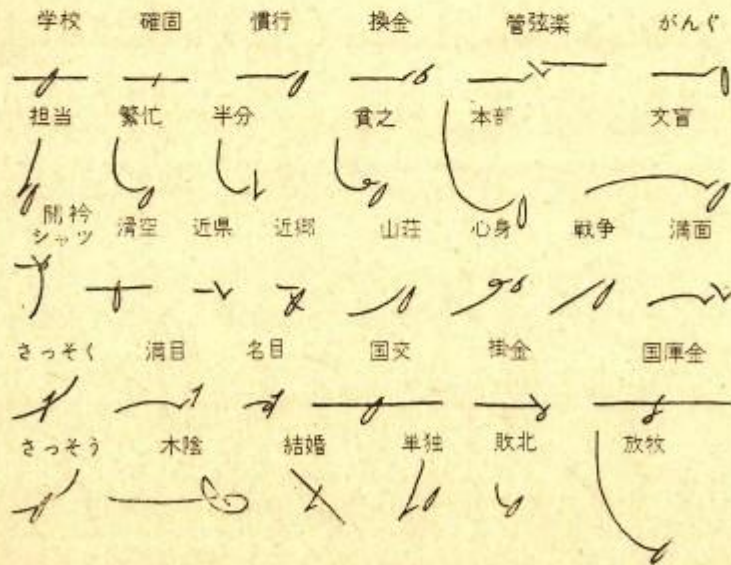 学校 確固 慣行 換金 管弦楽 がんぐ
担当 繁忙 半分 貧乏 本部 文盲
開衿シャツ 滑空 近県 近郷 山荘 心身 戦争 満面
さっそく 満目 名目 国交 掛金 国庫金
さっそう 木陰 結婚 単独 敗北 放牧